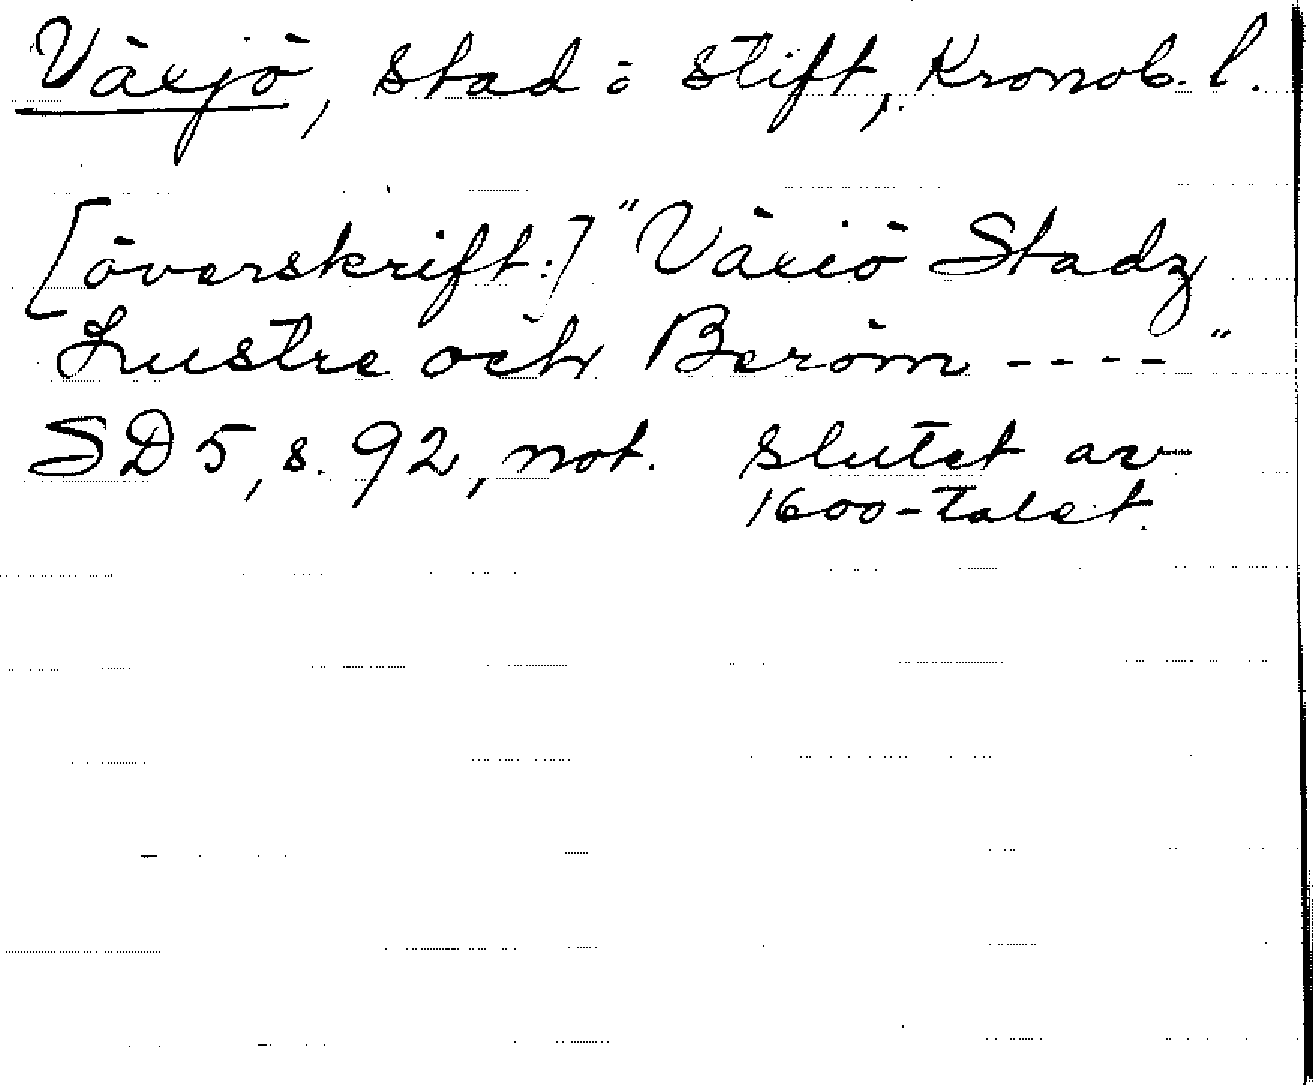 Växjö, stad o stift, Kronob. l.
[överskrift:] "Växiö Stadz
Lustre och Beröm ----"
SD 5, s. 92, not. slutet av
1600-talet.